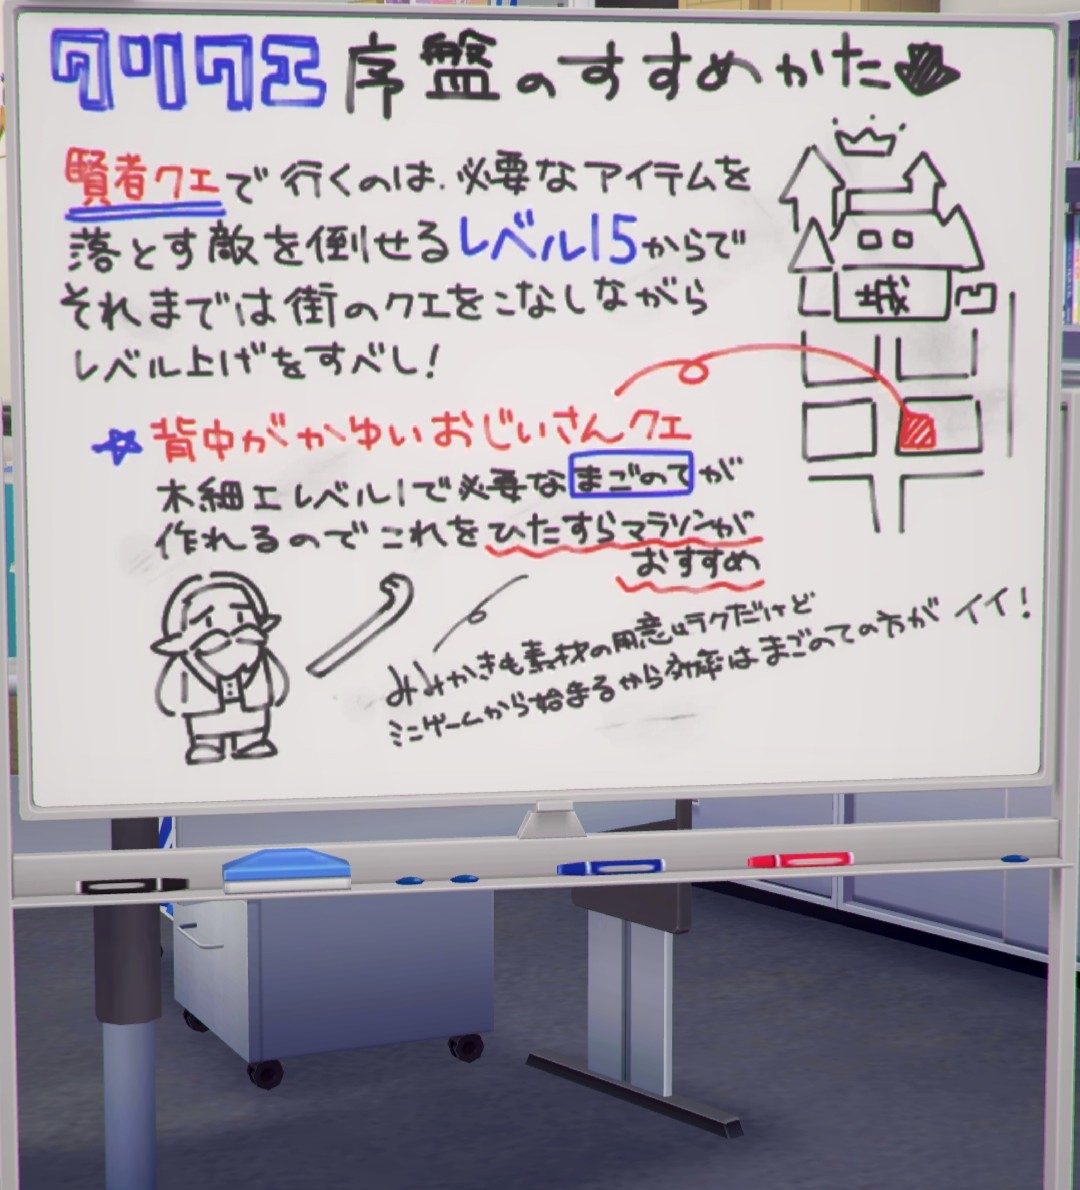 クリクエ序盤のすすめかた
賢者クエで行くのは、必要なアイテムを
落とす敵を倒せるレベル15からで
それまでは街のクエをこなしながら
レベル上げをすべし!
城
☆背中がかゆいおじいさんクエ
木細工レベル1で必要なまごのてが
作れるのでこれをひたすらマラソンが
おすすめ
みみかきも素材の用意はラクだけど
ミニゲームから始まるから効率はまごのての方がイイ!